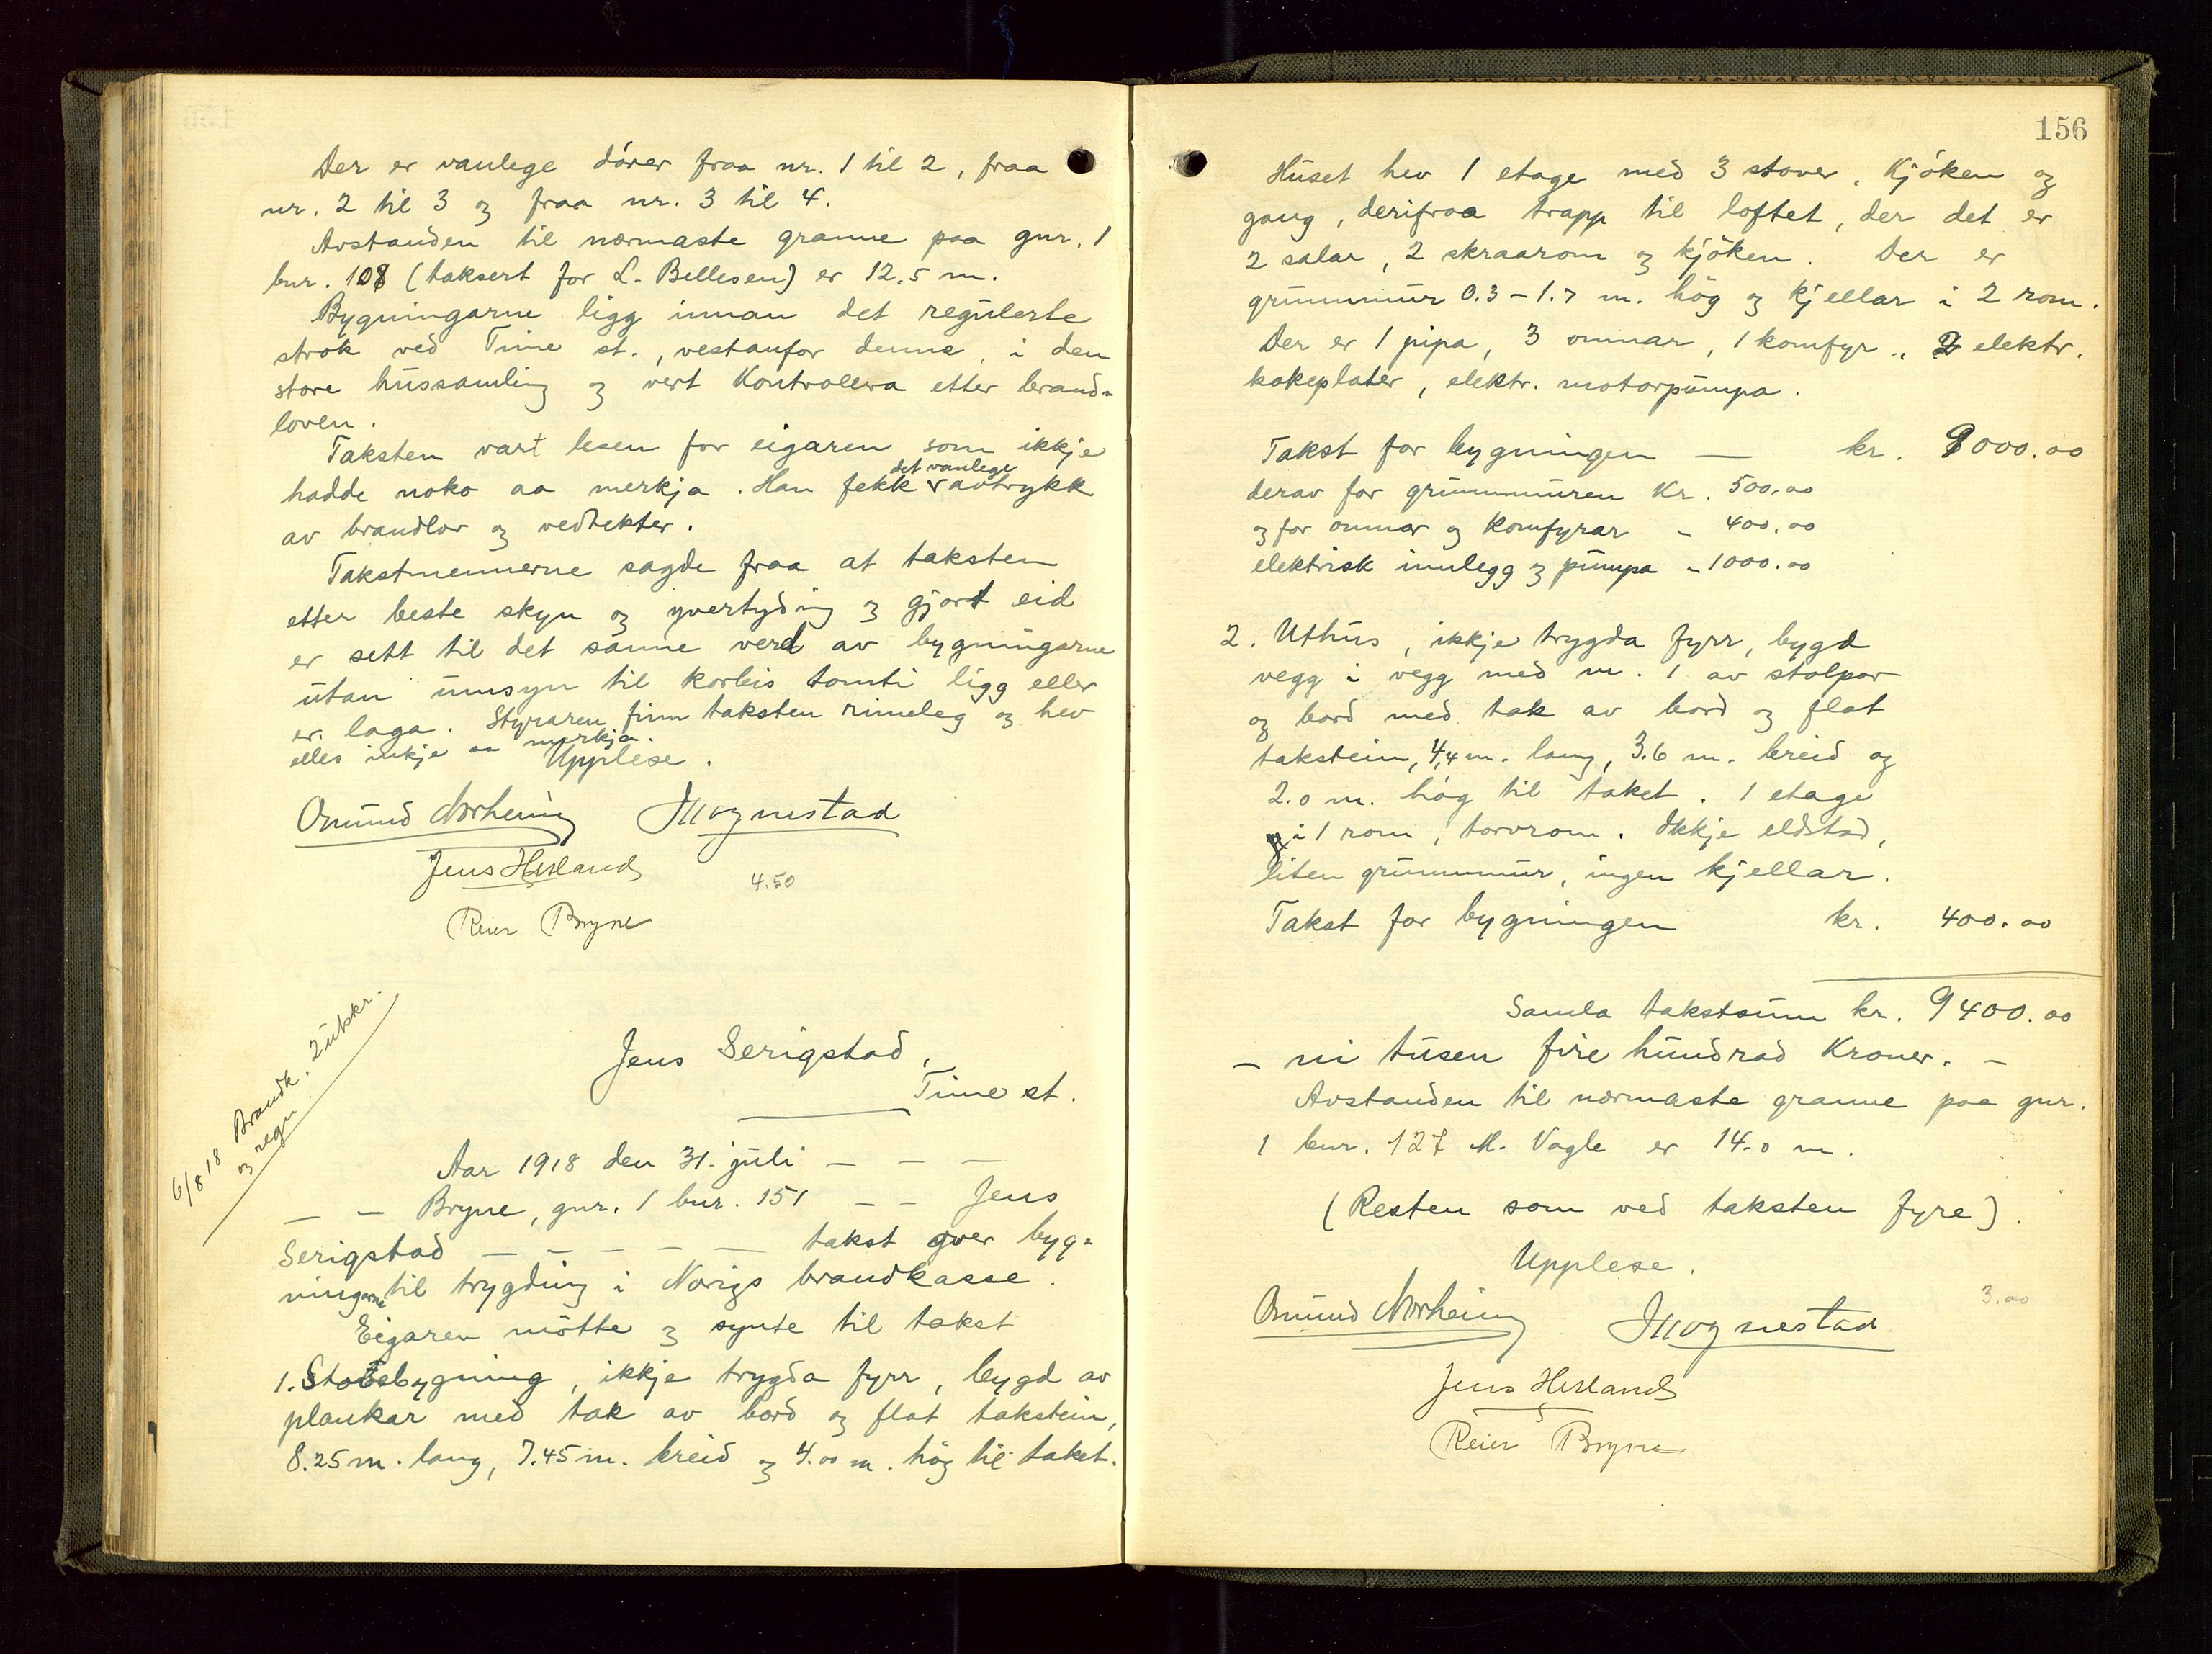 Der er vanlege dörer fraa nr. 1 til 2, fraa
nr. 2 til 3 og fraa nr. 3 til 4.
Avstanden til nærmaste granne paa gnr. 1
bnr. 108 (taksert for L. Bellesen) er 12.5 m.
Bygningarne ligg innan det regulerte
strok ved Time st., vestanfor denne, i den
store hussamling og vert Kontrollera etter brand-
loven.
Taksten vart lesen for eigaren som ikkje
hadde noko aa merkja. Han fekk det vanlege avtrykk
av brandlov og vedtekter.
Takstmennerne sagde fraa at taksten
etter beste skyn og yvertyding og gjort eid
er sett til det sanne verd av bygningarne
utan umsyn til korleis tomti ligg eller
er laga. Styraren finn taksten rimeleg og hev
elles inkje aa merkja.
Upplese.
Omund Norheim
Jens Hetland
4.50
Reier Bryne
6/8 18 Brandk. 2 utskr.
og regn.
Jens Serigstad,
Time st.
Aar 1918 den 31. juli — — —
— — Bryne, gnr. 1 bnr. 151 — — Jens
Serigstad — — — — — takst yver byg=
ningarne til trygding i Norigs brandkasse.
Eigaren mötte og synte til takst
1. Stovebygning, ikkje trygda fyrr, bygd av
plankar med tak av bord og flat takstein,
8.25 m. lang, 7.45 m. breid og 4.00 m. hög til taket.
156
Huset hev 1 etage med 3 stover, Kjöken og
gang, derifraa trapp til loftet, der det er
2 salar, 2 skraarom og kjöken. Der er
grunnmur 0.3 – 1.7 m. hög og kjellar i 2 rom.
Der er 1 pipa, 3 omnar, 1 komfyr, 2 elektr.
kokeplater, elektr. motorpumpa.
Takst for bygningen — kr. 9000.00
derav for grunnmuren Kr. 500.00
og for omnar og Komfyrar - 400.00
elektrisk innlegg og pumpa - 1000.00
2. Uthus, ikkje trygda fyrr, bygd
vegg i vegg med nr. 1 av stolpar
og bord med tak av bord og flat
takstein, 4,4 m. lang, 3.6 m. breid og
2.0 m. hög til taket. 1 etage
i 1 rom, torvrom. Ikkje eldstad,
liten grunnmur, ingen kjellar.
Takst for bygningen kr. 400.00
Samla takstsum kr. 9400.00
— ni tusen fire hundrad Kroner. —
Avstanden til nærmaste granne paa gnr.
1 bnr. 127 M. Vagle er 14.0 m.
(Resten som ved taksten fyre).
Upplese.
3.00
Omund Norheim
Jens Hetland
Reier Bryne